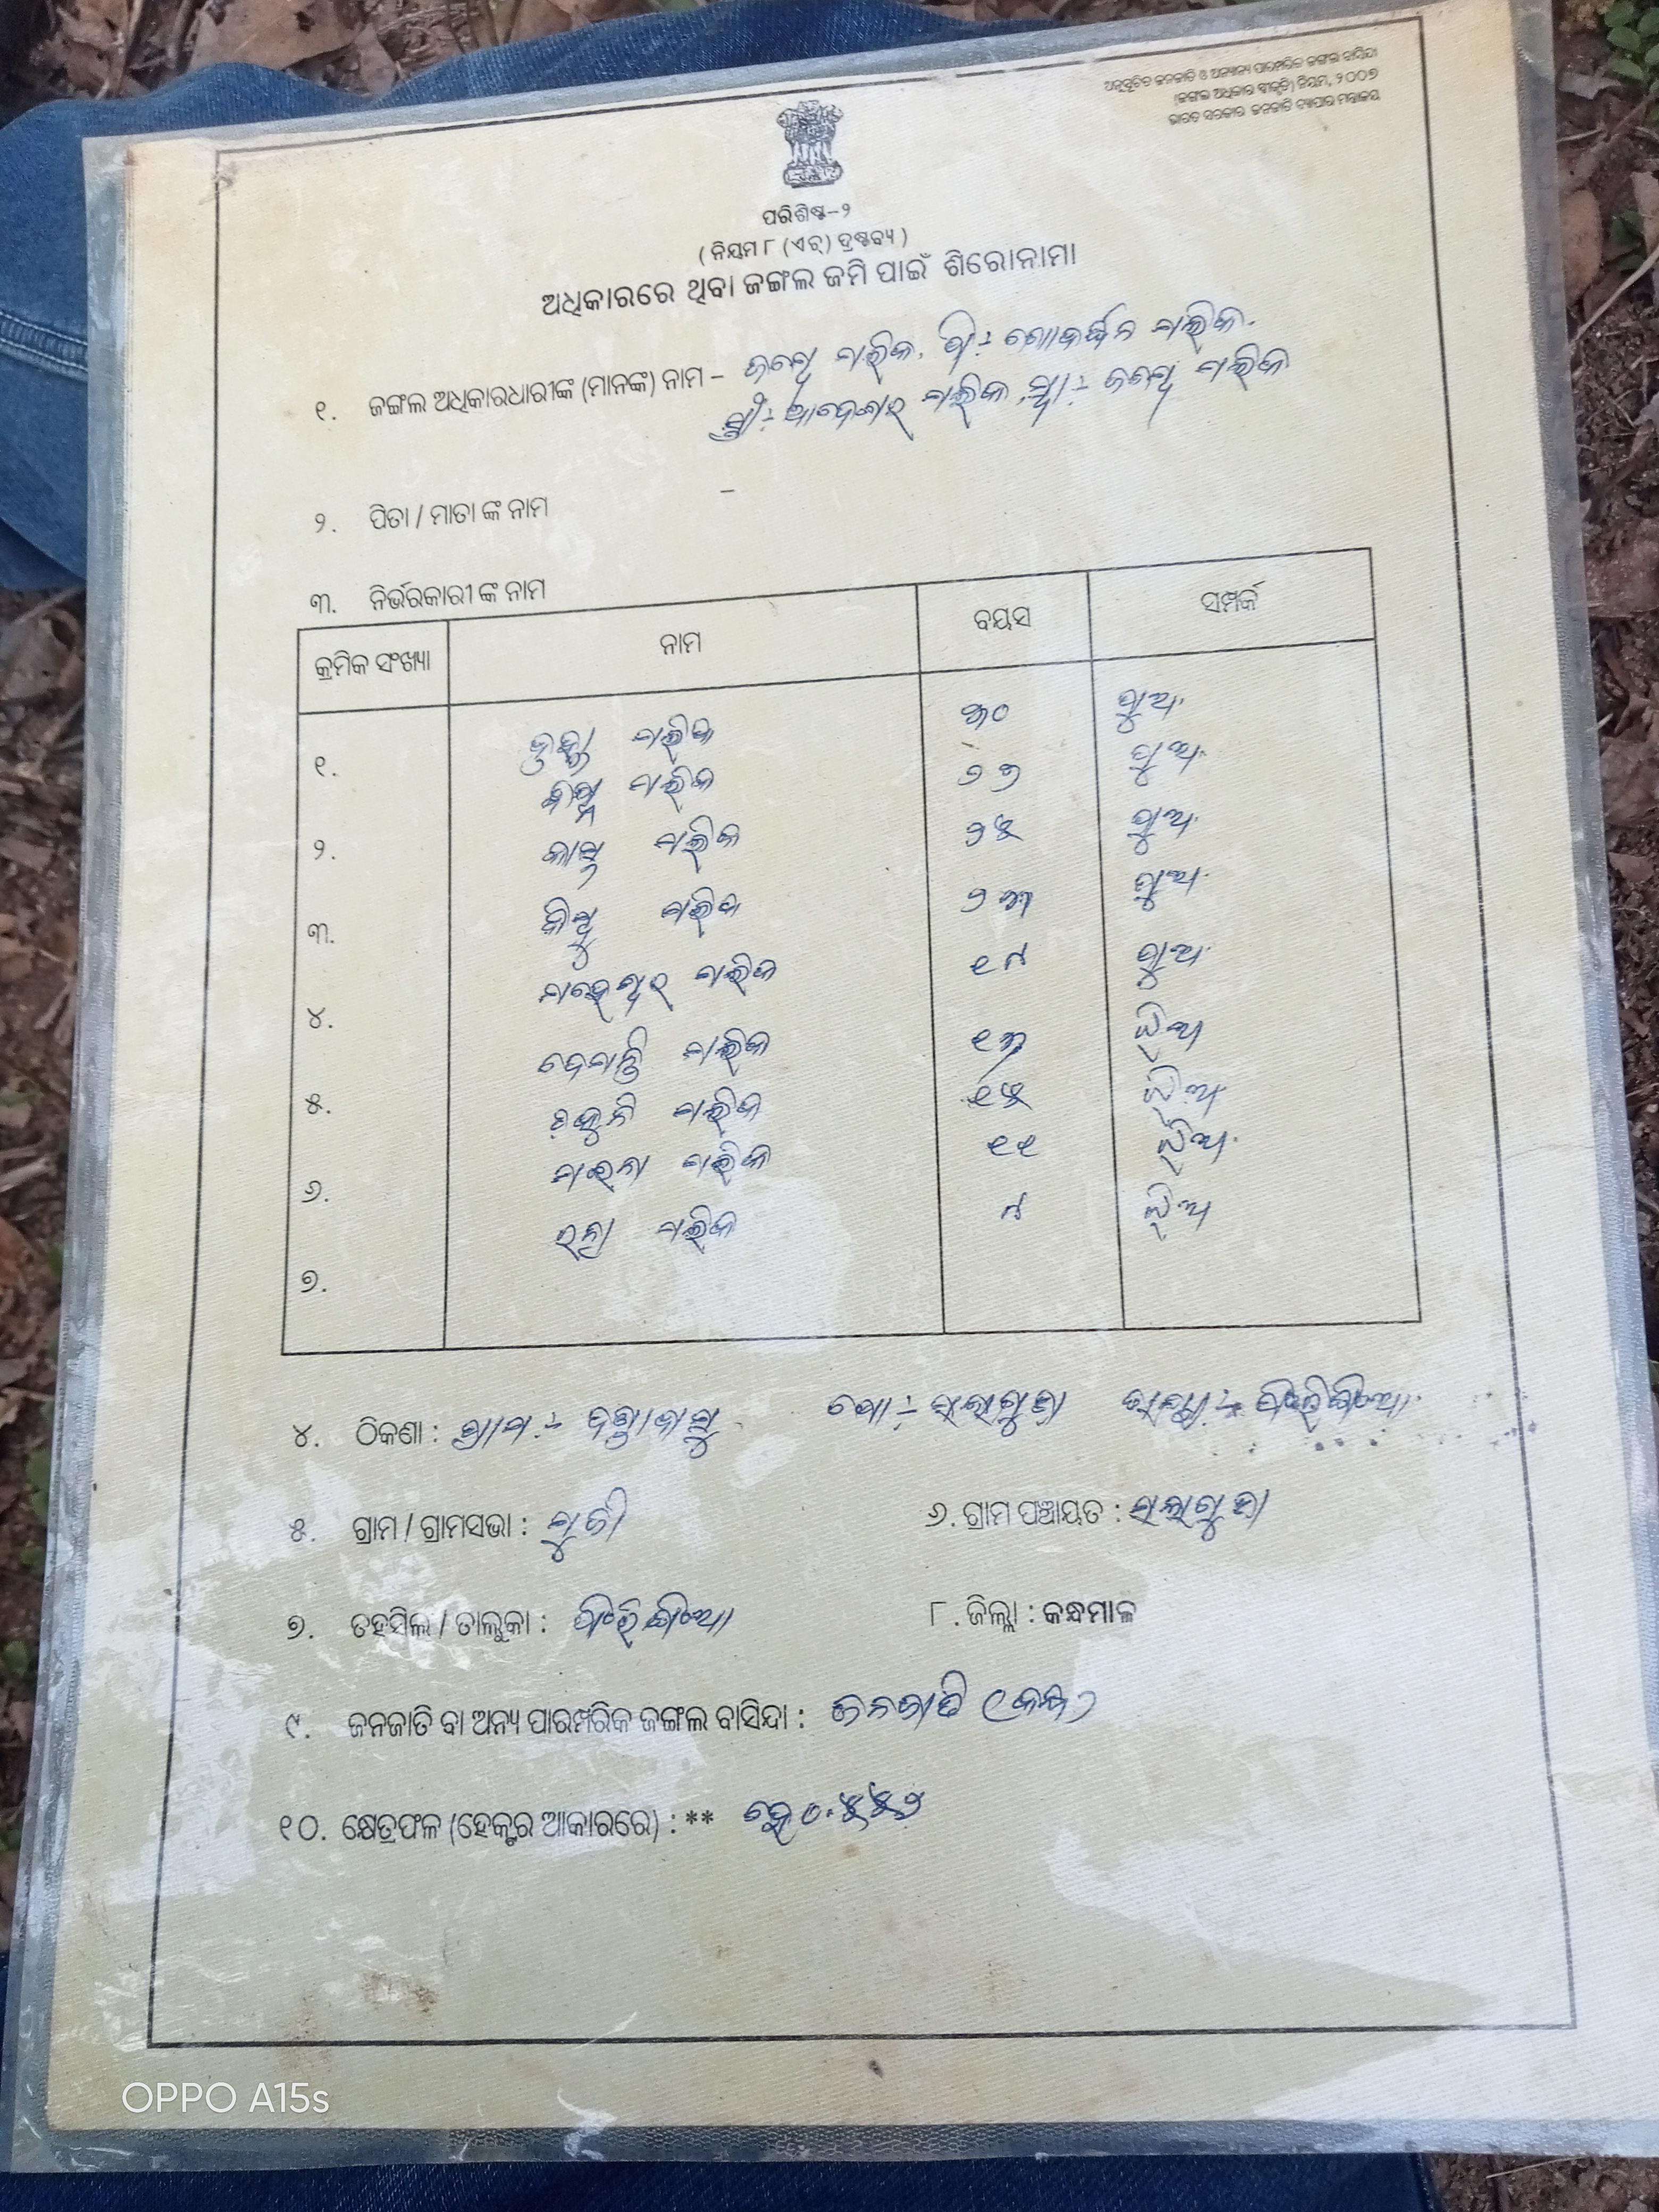 ଅନୁସୂଚିତ ଜନଜାତି ଓ ଅନ୍ୟାନ୍ୟ ପାରମ୍ପରିକ ଜଙ୍ଗଲ ବାସିନ୍ଦା
(ଜଙ୍ଗଲ ଅଧିକାର ସ୍ୱୀକୃତି) ନିୟମ, ୨୦୦୭
ଭାରତ ସରକାର ଜନଜାତି ବ୍ୟାପାର ମନ୍ତ୍ରାଳୟ
ପରିଶିଷ୍ଟ-୨
( ନିୟମ ୮ (ଏଚ୍) ଦ୍ରଷ୍ଟବ୍ୟ )
ଅଧିକାରରେ ଥିବା ଜଙ୍ଗଲ ଜମି ପାଇଁ ଶିରୋନାମା
୧. ଜଙ୍ଗଲ ଅଧିକାରଧାରୀଙ୍କ (ମାନଙ୍କ) ନାମ – ମଲିକ, ପି:- ଗୋବର୍ଦ୍ଧନ ମଲିକ.
ସ୍ତ୍ରୀ:- ମଲିକ, ସ୍ୱା:- ମଲିକ
୨. ପିତା / ମାତା ଙ୍କ ନାମ –
୩. ନିର୍ଭରକାରୀ ଙ୍କ ନାମ
କ୍ରମିକ ସଂଖ୍ୟା ନାମ ବୟସ ସମ୍ପର୍କ
୧. ମଲିକ ୩୦ ପୁଅ
ମଲିକ ୨୭ ପୁଅ
୨. ମଲିକ ୨୫ ପୁଅ
୩. ମଲିକ ୨୩ ପୁଅ
୪. ମହେଶ୍ୱର ମଲିକ ୧୯ ପୁଅ
ହେମନ୍ତି ମଲିକ ୧୩ ଝିଅ
୫. ମଲିକ ୧୫ ଝିଅ
୬. ମଇନା ମଲିକ ୧୧ ଝିଅ
ମଲିକ ୯ ଝିଅ
୭.
୪. ଠିକଣା : ଗ୍ରାମ:- ପୋ:- ସଲାଗୁଡ଼ା ଥାନା:- ଫିରିଙ୍ଗିଆ
୫. ଗ୍ରାମ / ଗ୍ରାମସଭା : ୬. ଗ୍ରାମ ପଞ୍ଚାୟତ : ସଲାଗୁଡ଼ା
୭. ତହସିଲ / ତାଲୁକା : ଫିରିଙ୍ଗିଆ ୮. ଜିଲ୍ଲା : କନ୍ଧମାଳ
୯. ଜନଜାତି ବା ଅନ୍ୟ ପାରମ୍ପରିକ ଜଙ୍ଗଲ ବାସିନ୍ଦା : ଜନଜାତି (କନ୍ଧ)
୧୦. କ୍ଷେତ୍ରଫଳ (ହେକ୍ଟର ଆକାରରେ) : ** ହେ ୦.୫୫୨
OPPO A15s